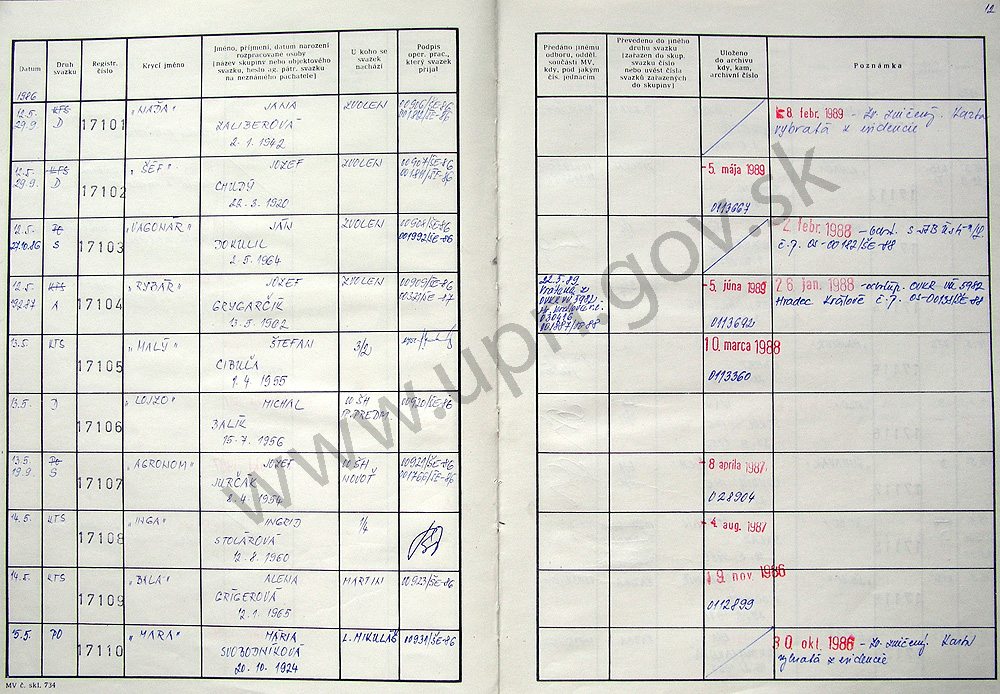 12
Datum
Druh
svazku
Registr.
číslo
Krycí jméno
Jméno, příjmení, datum narození
rozpracované osoby
(název skupiny nebo objektového
svazku, heslo ag. pátr. svazku
na neznámého pachatele)
U koho se
svazek
nachází
Podpis
oper. prac.,
který svazek
přijal
Předáno jinému
odboru, odděl.
součásti MV,
kdy, pod jakým
čís. jednacím
Převedeno do jiného
druhu svazku
(zařazen do skup.
svazků číslo
nebo uvést čísla
svazků zařazených
do skupiny)
Uloženo
do archivu
kdy, kam,
archivní číslo
Poznámka
1986
12.5. KTS 17101 „NAĎA" JANA ZVOLEN 00906/ŠE-86
29.9 D ZALIBEROVÁ
2. 1. 1942
8. febr. 1989 - Zv. zničený. Karta
vybratá z evidencie
12.5. KTS 17102 „ŠÉF" JOZEF ZVOLEN 00907/ŠE-86
29.9. D CHUDÝ
22. 3. 1920
5. mája 1989
0113667
12.5. PO 17103 „VAGONÁR" JÁN ZVOLEN 00908/ŠE-86
27.10.86 S DOKULIL 001992/ŠE-86
2. 5. 1964
2. febr. 1988
č.j. OS-00182/ŠE-88
12.5. KTS 17104 „RYBÁR" JOZEF ZVOLEN 00909/ŠE-86
A GRYGARČÍK
13. 5. 1902
22.5.89
5. júna 1989
0113692
26 jan. 1988 - odstup. OVKR VÚ 5982
Hradec Králové č.j. OS-00131/ŠE-88
13.5. KTS 17105 „MALÝ" ŠTEFAN 3/2
CIBUĽA
1. 4. 1955
10. marca 1988
0113360
13.5. D 17106 „LOJZO" MICHAL 00920/ŠE-86
BALÍK
15. 7. 1956
13.5 PO 17107 „AGRONOM" JOZEF 00921/ŠE-86
19.9. S JURČÁK NOVOŤ 001766/ŠE-86
8. 4. 1954
8 apríla 1987
028904
14.5. KTS 17108 „INGA" INGRID 1/4
STOLÁROVÁ
12. 8. 1960
4. aug. 1987
14.5. KTS 17109 „BIELA" ALENA MARTIN 00923/ŠE-86
GRIGEROVÁ
12. 1. 1965
19. nov. 1986
0112899
15.5. PO 17110 „MARA" MÁRIA L. MIKULÁŠ 00931/ŠE-86
SVOBODNÍKOVÁ
20. 10. 1924
30. okt. 1986 - Zv. zničený. Karta
vybratá z evidencie
MV č. skl. 734
www.upn.gov.sk